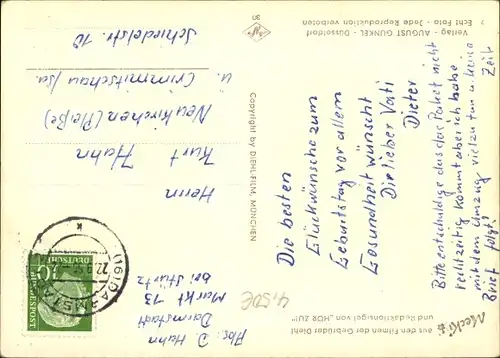 Mecki
aus den Filmen der Gebrüder Diehl
und Redaktionsigel von „HÖR ZU!"
Die besten
Glückwünsche zum
Geburtstag vor allem
Gesundheit wünscht
Dir lieber Vati
Dieter
Bitte entschuldige das das Paket nicht
rechtzeitig kommt aber ich habe
mit dem Umzug viel zu tun u. keine Zeit
Brief folgt!
Verlag · AUGUST GUNKEL · Düsseldorf
Echt Foto · Jede Reproduktion verboten
Copyright by DIEHL-FILM, MÜNCHEN
31
4,50€
Abs: D. Hahn
Darmstadt
Markt 13
bei Stürtz
(16) DARMSTADT
22.9.
k
10
DEUTSCHE
BUNDESPOST
Herrn
Kurt Hahn
Neukirchen (Pleiße)
ü. Crimmitschau/Sa.
Schiedelstr. 10